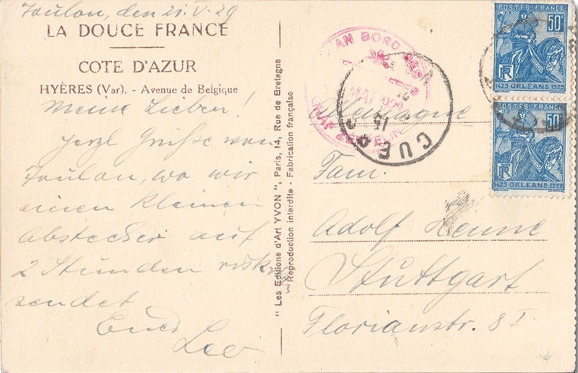 Toulon, den 21.V.29
LA DOUCE FRANCE
COTE D'AZUR
HYÈRES (Var). - Avenue de Belgique
Meine Lieben!
Herzl Grüße von
Toulon, wo wir
einen kleinen
Abstecher auf
2 Stunden
sendet
Euer
Leo
"Les Editions d'Art YVON", Paris, 14, Rue de Bretagne
Reproduction interdite - Fabrication française
AN BORD DES
MAI 1929
GRAF ZEPPELIN
CUERS
15
POSTES-FRANCE
50c
RF
1429 ORLEANS 1929
POSTES-FRANCE
50c
RF
1429 ORLEANS 1929
Allemagne
Fam.
Adolf Henne
Stuttgart
Florianstr. 8 I